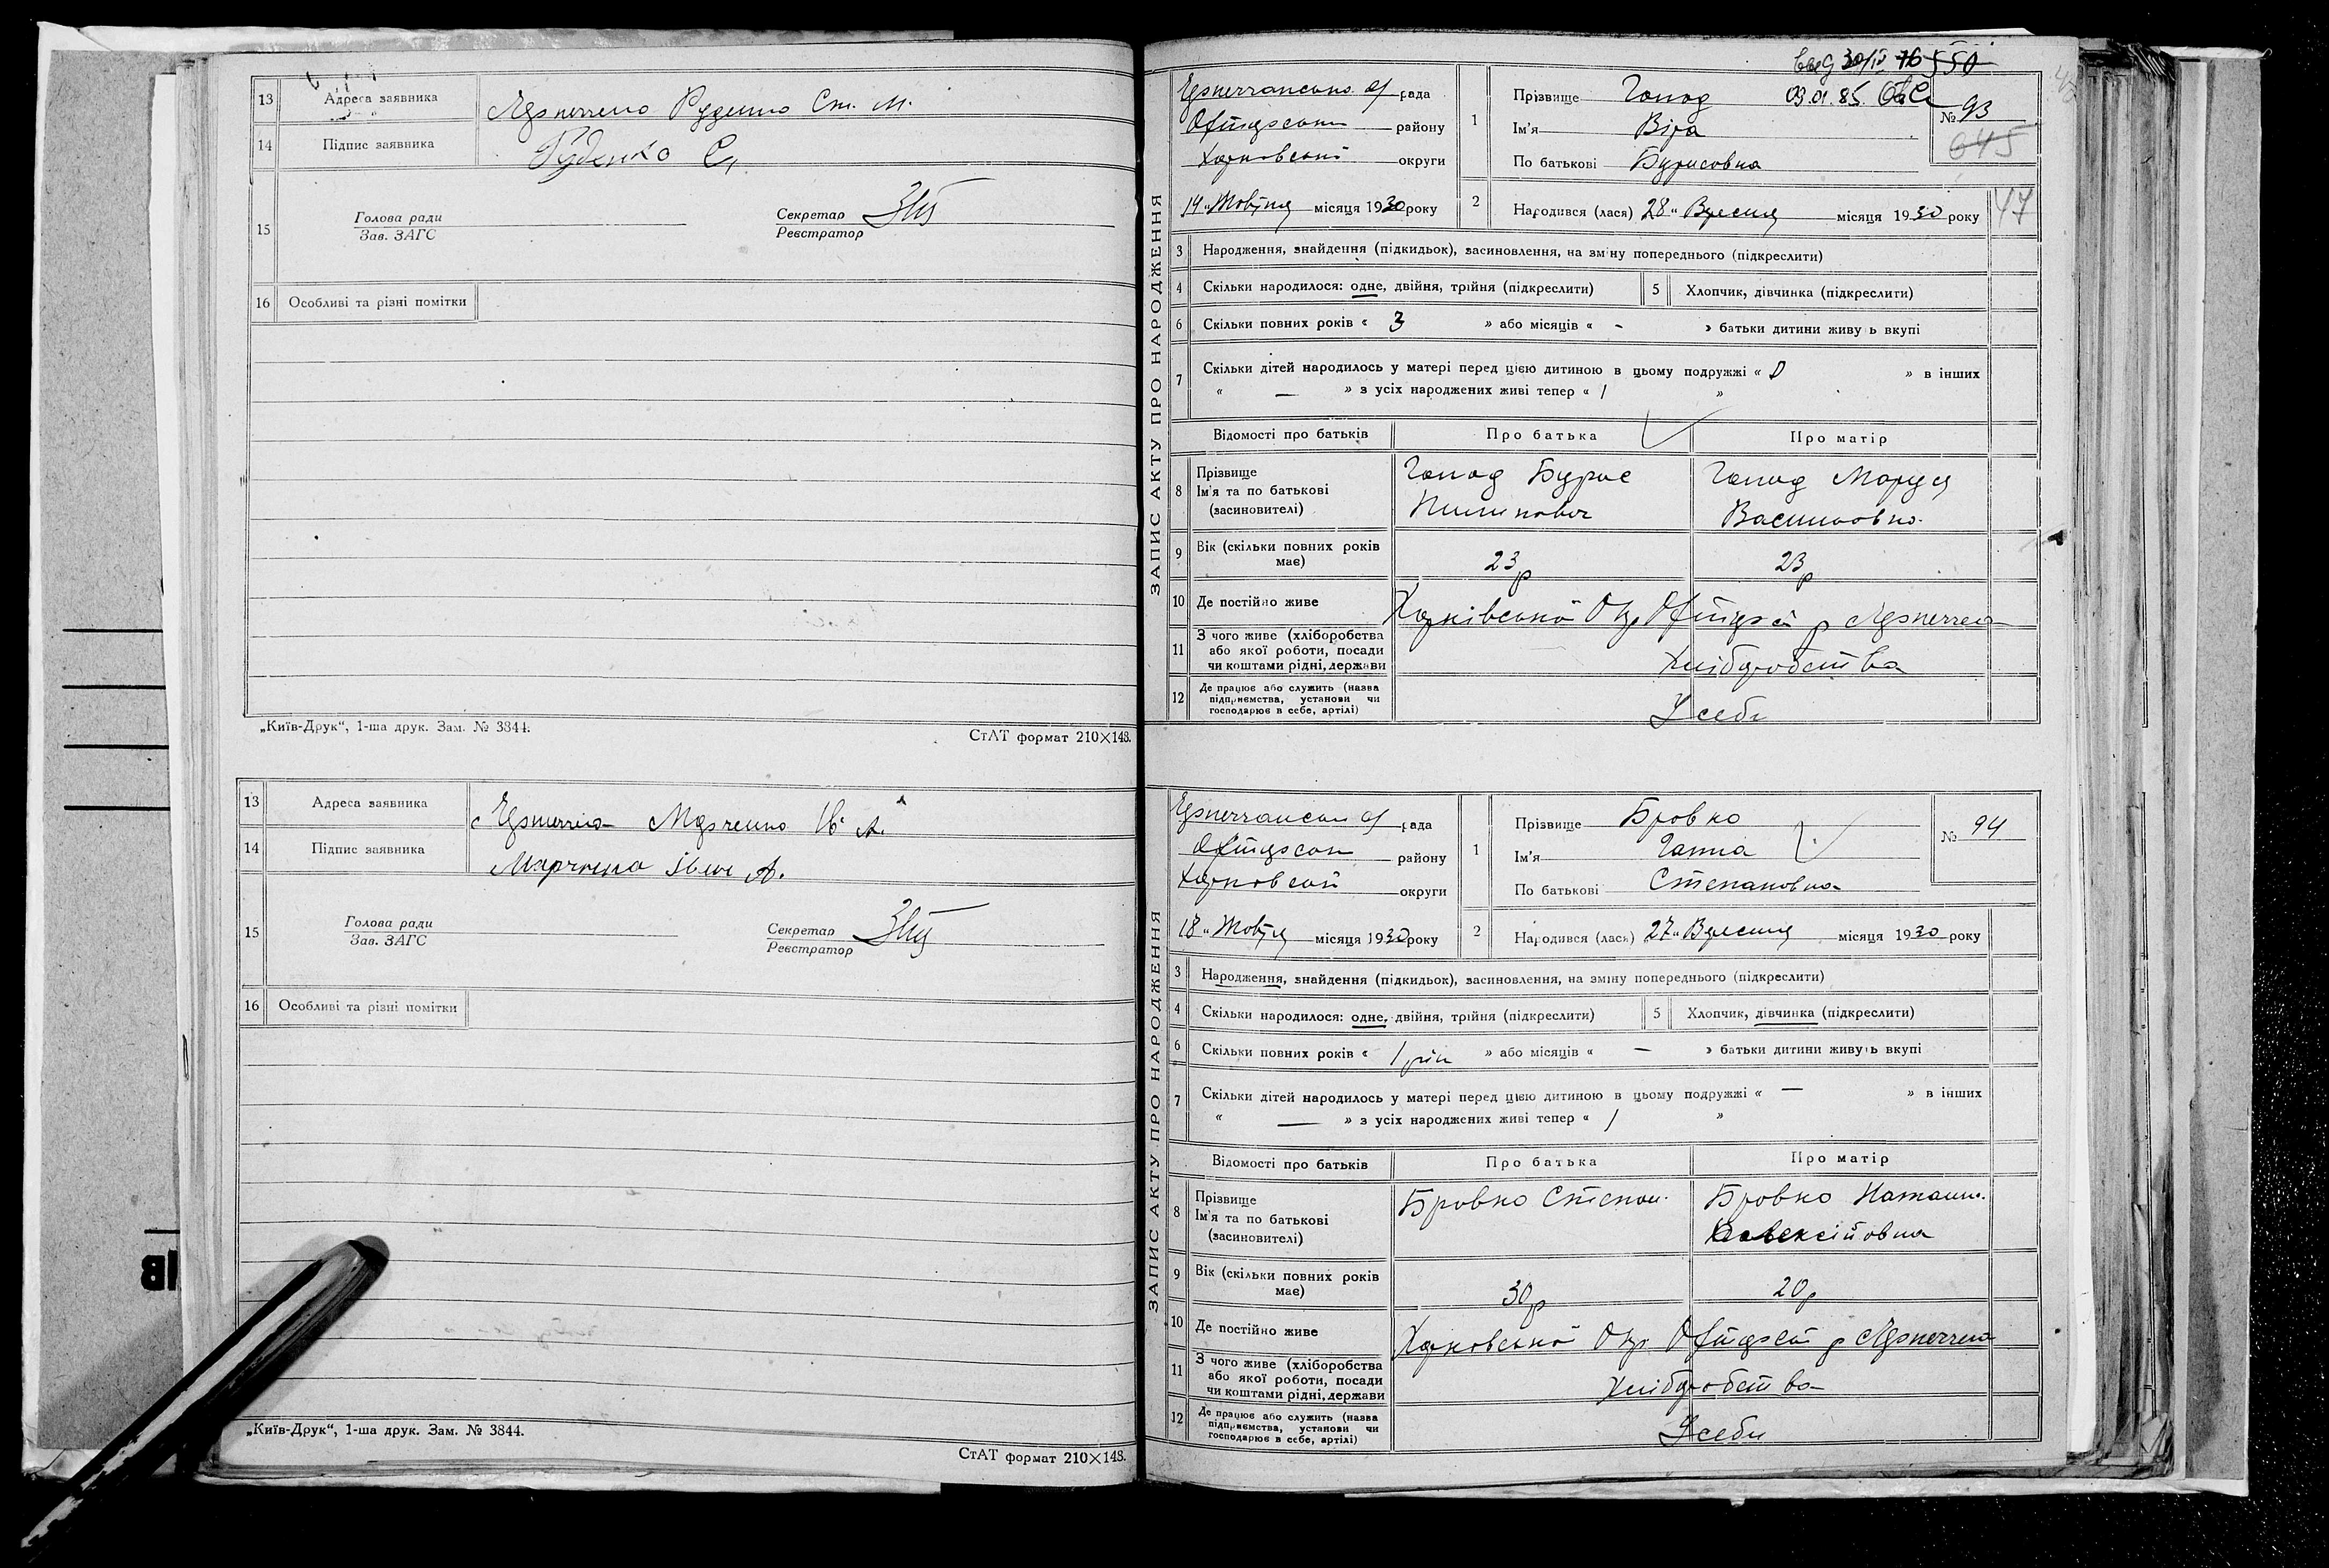 13 Адреса заявника
Руденко Ст. М.
14 Підпис заявника
Руденко С,
15 Голова ради
Зав. ЗАГС
Секретар
Реєстратор
16 Особливі та різні помітки
„Київ-Друк“, 1-ша друк. Зам. № 3844.
СтАТ формат 210×148.
13 Адреса заявника
Ів. А.
14 Підпис заявника
15 Голова ради
Зав. ЗАГС
Секретар
Реєстратор
16 Особливі та різні помітки
„Київ-Друк“, 1-ша друк. Зам. № 3844.
СтАТ формат 210×148.
550
ЗАПИС АКТУ ПРО НАРОДЖЕННЯ
рада
району
Харковської округи
14 „ Жовтня місяця 1930 року
1 Прізвище
03.01.85.
Ім'я Віра
По батькові Бурисовна
№ 93
645
2 Народився (лася) 28 „ Вересня місяця 1930 року
47
3 Народження, знайдення (підкидьок), засиновлення, на зміну попереднього (підкреслити)
4 Скільки народилося: одне, двійня, трійня (підкреслити) 5 Хлопчик, дівчинка (підкреслити)
6 Скільки повних років « 3 » або місяців « – » батьки дитини живуть вкупі
7 Скільки дітей народилось у матері перед цією дитиною в цьому подружжі « 0 » в інших
« — » з усіх народжених живі тепер « 1 »
Відомості про батьків Про батька Про матір
8 Прізвище
Ім'я та по батькові
(засиновителі)
Бурис
Пилипович
Маруся
Василовна
9 Вік (скільки повних років
має) 23р 23р
10 Де постійно живе Харківської Окр
11 З чого живе (хліборобства
або якої роботи, посади
чи коштами рідні, держави
Хліборобства
12 Де працює або служить (назва
підприємства, установи чи
господарює в себе, артілі)
У себе
ЗАПИС АКТУ ПРО НАРОДЖЕННЯ
рада
району
Харковської округи
18 „ Жовтня місяця 1930 року
1 Прізвище Бровко
Ім'я Ганна
По батькові Степановна
№ 94
2 Народився (лася) 27 „ Вересня місяця 1930 року
3 Народження, знайдення (підкидьок), засиновлення, на зміну попереднього (підкреслити)
4 Скільки народилося: одне, двійня, трійня (підкреслити) 5 Хлопчик, дівчинка (підкреслити)
6 Скільки повних років « 1 рік » або місяців « — » батьки дитини живуть вкупі
7 Скільки дітей народилось у матері перед цією дитиною в цьому подружжі « — » в інших
« — » з усіх народжених живі тепер « 1 »
Відомості про батьків Про батька Про матір
8 Прізвище
Ім'я та по батькові
(засиновителі)
Бровко Степан
Бровко
9 Вік (скільки повних років
має) 30р 20р
10 Де постійно живе Харковської Окр.
11 З чого живе (хліборобства
або якої роботи, посади
чи коштами рідні, держави
Хліборобства
12 Де працює або служить (назва
підприємства, установи чи
господарює в себе, артілі)
У себе